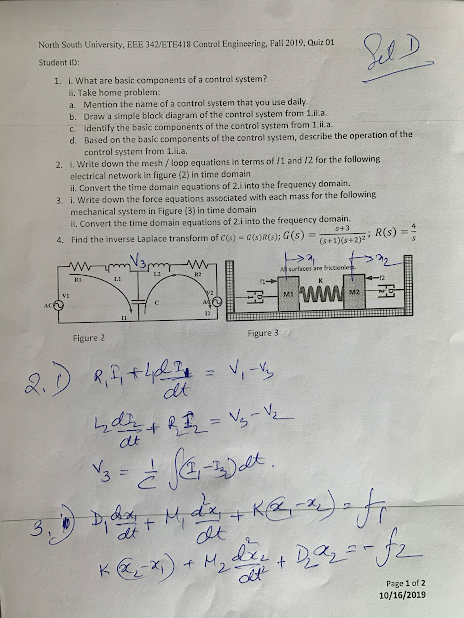 North South University, EEE 342/ETE418 Control Engineering, Fall 2019, Quiz 01
Set D
Student ID:
1. i. What are basic components of a control system?
ii. Take home problem:
a. Mention the name of a control system that you use daily.
b. Draw a simple block diagram of the control system from 1.ii.a.
c. Identify the basic components of the control system from 1.ii.a.
d. Based on the basic components of the control system, describe the operation of the
control system from 1.ii.a.
2. i. Write down the mesh / loop equations in terms of I1 and I2 for the following
electrical network in figure (2) in time domain
ii. Convert the time domain equations of 2.i into the frequency domain.
3. i. Write down the force equations associated with each mass for the following
mechanical system in Figure (3) in time domain
ii. Convert the time domain equations of 2.i into the frequency domain.
4. Find the inverse Laplace transform of C(s) = G(s)R(s); G(s) = s+3 / (s+1)(s+2)² ; R(s) = 4/s
R1 L1 V3 L2 R2
V1 AC I1 C V2 AC I2
x1 x2
All surfaces are frictionless
f1 M1 K M2 f2
Figure 2 Figure 3
2.i) R₁I₁ + L₁ dI₁/dt = V₁ - V₃
L₂ dI₂/dt + R₂I₂ = V₃ - V₂
V₃ = 1/C ∫(I₁-I₂)dt.
3.i) D₁ dx₁/dt + M₁ d²x₁/dt + K(x₁-x₂) = f₁
K(x₂-x₁) + M₂ d²x₂/dt² + D₂x₂ = -f₂
Page 1 of 2
10/16/2019